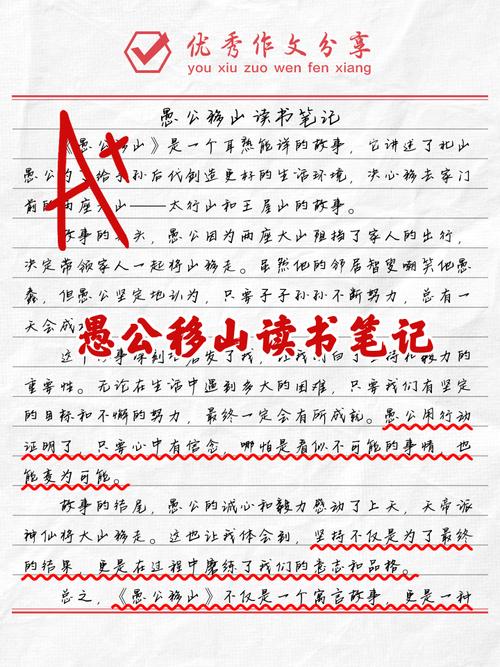 优秀作文分享
you xiu zuo wen fen xiang
愚公移山读书笔记
A+
《愚公移山》是一个耳熟能详的故事，它讲述了北山
愚公为了给子孙后代创造更好的生活环境，决心移去家门
前的两座大山——太行山和王屋山的故事。
故事的开头，愚公因为两座大山阻挡了家人的出行，
决定带领家人一起将山移走。虽然他的邻居智叟嘲笑他愚
蠢，但愚公坚定地认为，只要子子孙孙不断努力，总有一
天会成
愚公移山读书笔记
这个 事深刻 启发了我，让我明白了 持和毅力的
重要性。无论在生活中遇到多大的困难，只要我们有坚定
的目标和不懈的努力，最终一定会有所成就。愚公用行动
证明了，只要心中有信念，哪怕是看似不可能的事情，也
能变为可能。
故事的结尾，愚公的诚心和毅力感动了上天，天帝派
神仙将大山移走。这也让我体会到，坚持不仅是为了最终
的结果，更是在过程中磨练了我们的意志和品格。
总之，《愚公移山》不仅是一个寓言故事，更是一种